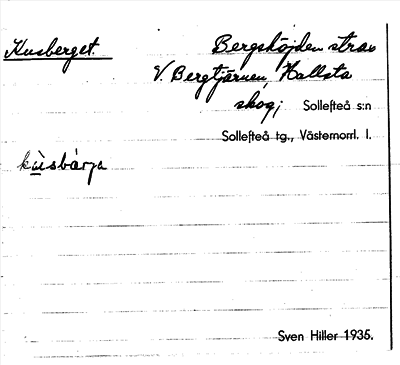 Kusberget. Bergshöjden strax
V. Bergtjärnen, Hallsta
skog; Sollefteå s:n
Sollefteå tg., Västernorrl. l.
kùsbárja
Sven Hiller 1935.